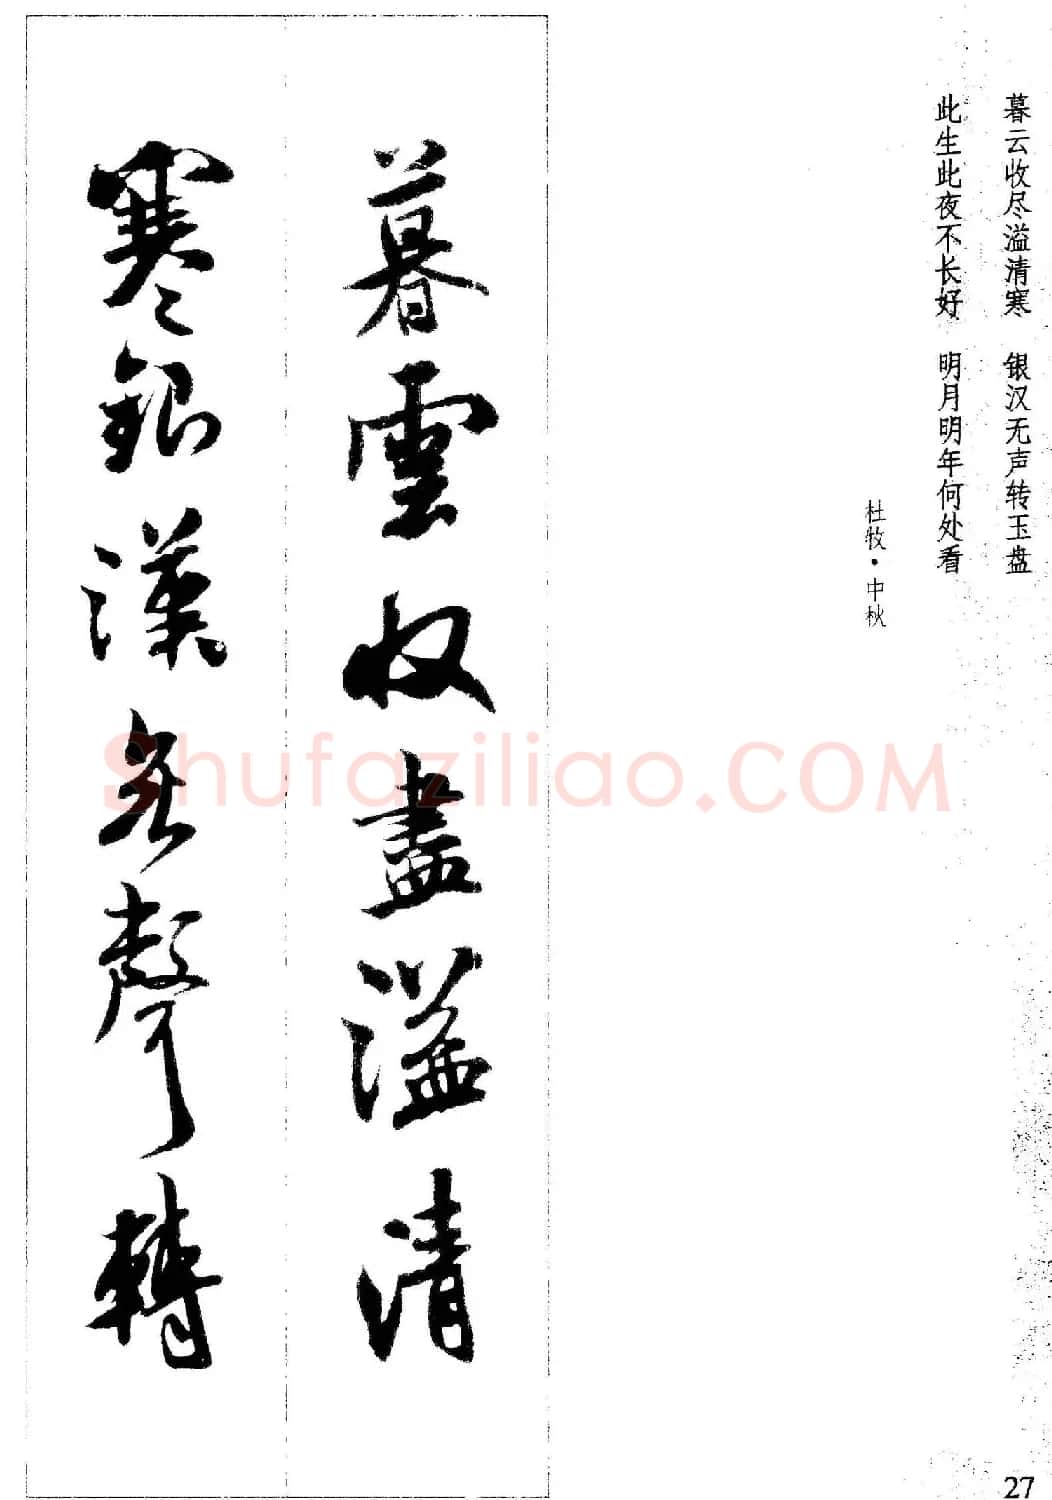 暮云收尽溢清寒 银汉无声转玉盘
此生此夜不长好 明月明年何处看
杜牧·中秋
暮雲收盡溢清
寒銀漢無聲轉
Shufaziliao.COM
27